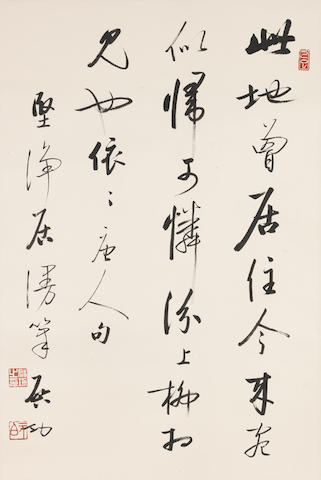 此地曾居住今來宛
似歸可憐汾上柳相
見也依〻唐人句
堅淨居漫筆 啟功